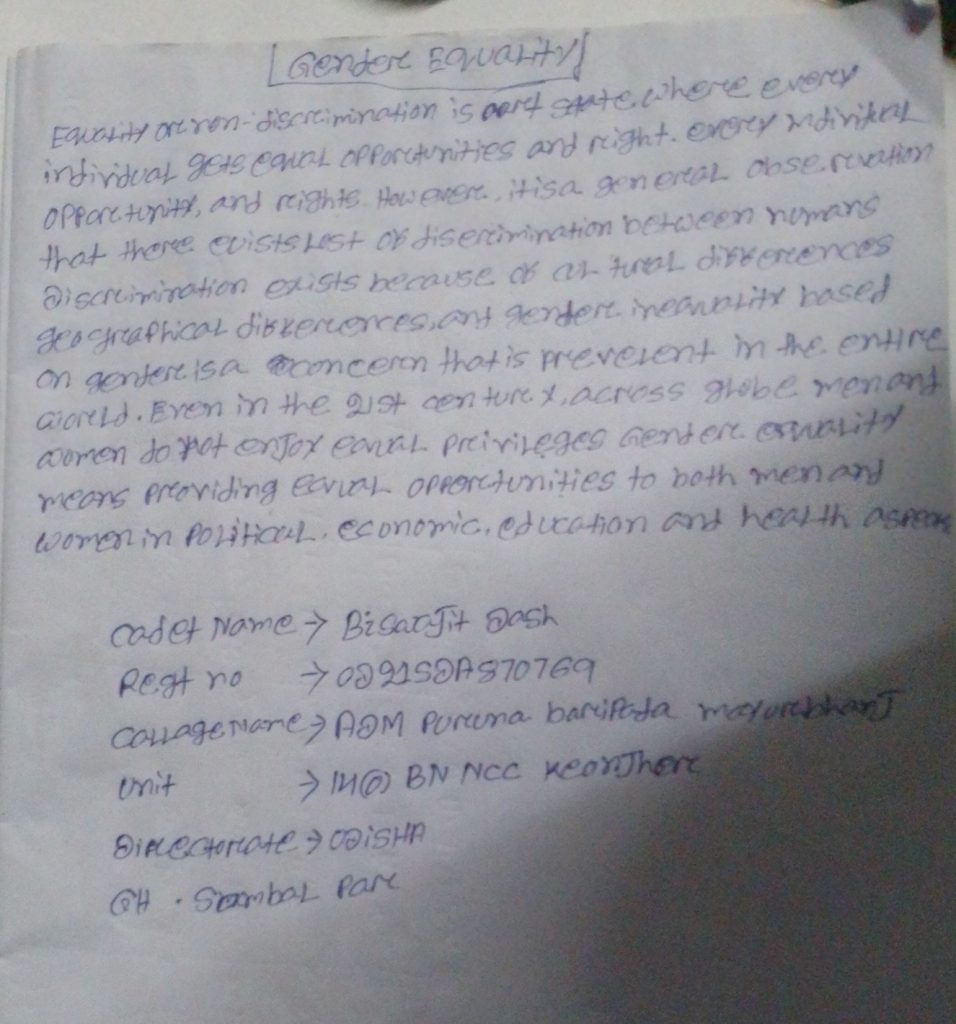 Gendere Equality
Equality ore non-discrimination is state, where every
individual gets equal opporctunities and reight. every individual
opporetunity, and reights. However, it is a general observation
that there exists lost of discrimination between humans
Discrimination exists because of cultural differences
geographical differences, and gendere inequality based
on gendere is a concern that is preverent in the entire
world. Even in the 21st century, across globe men and
women do not enjoy equal privileges Gendere equality
means preoviding equal opporctunities to both men and
women in political, economic, education and health aspects
Cadet Name → Dash
Regt no → OD21SDA870769
Collage Name → ADM Puruna baripada mayurebhanj
Unit → 14(O) BN NCC Keonjhore
Direectorate → ODISHA
GH.